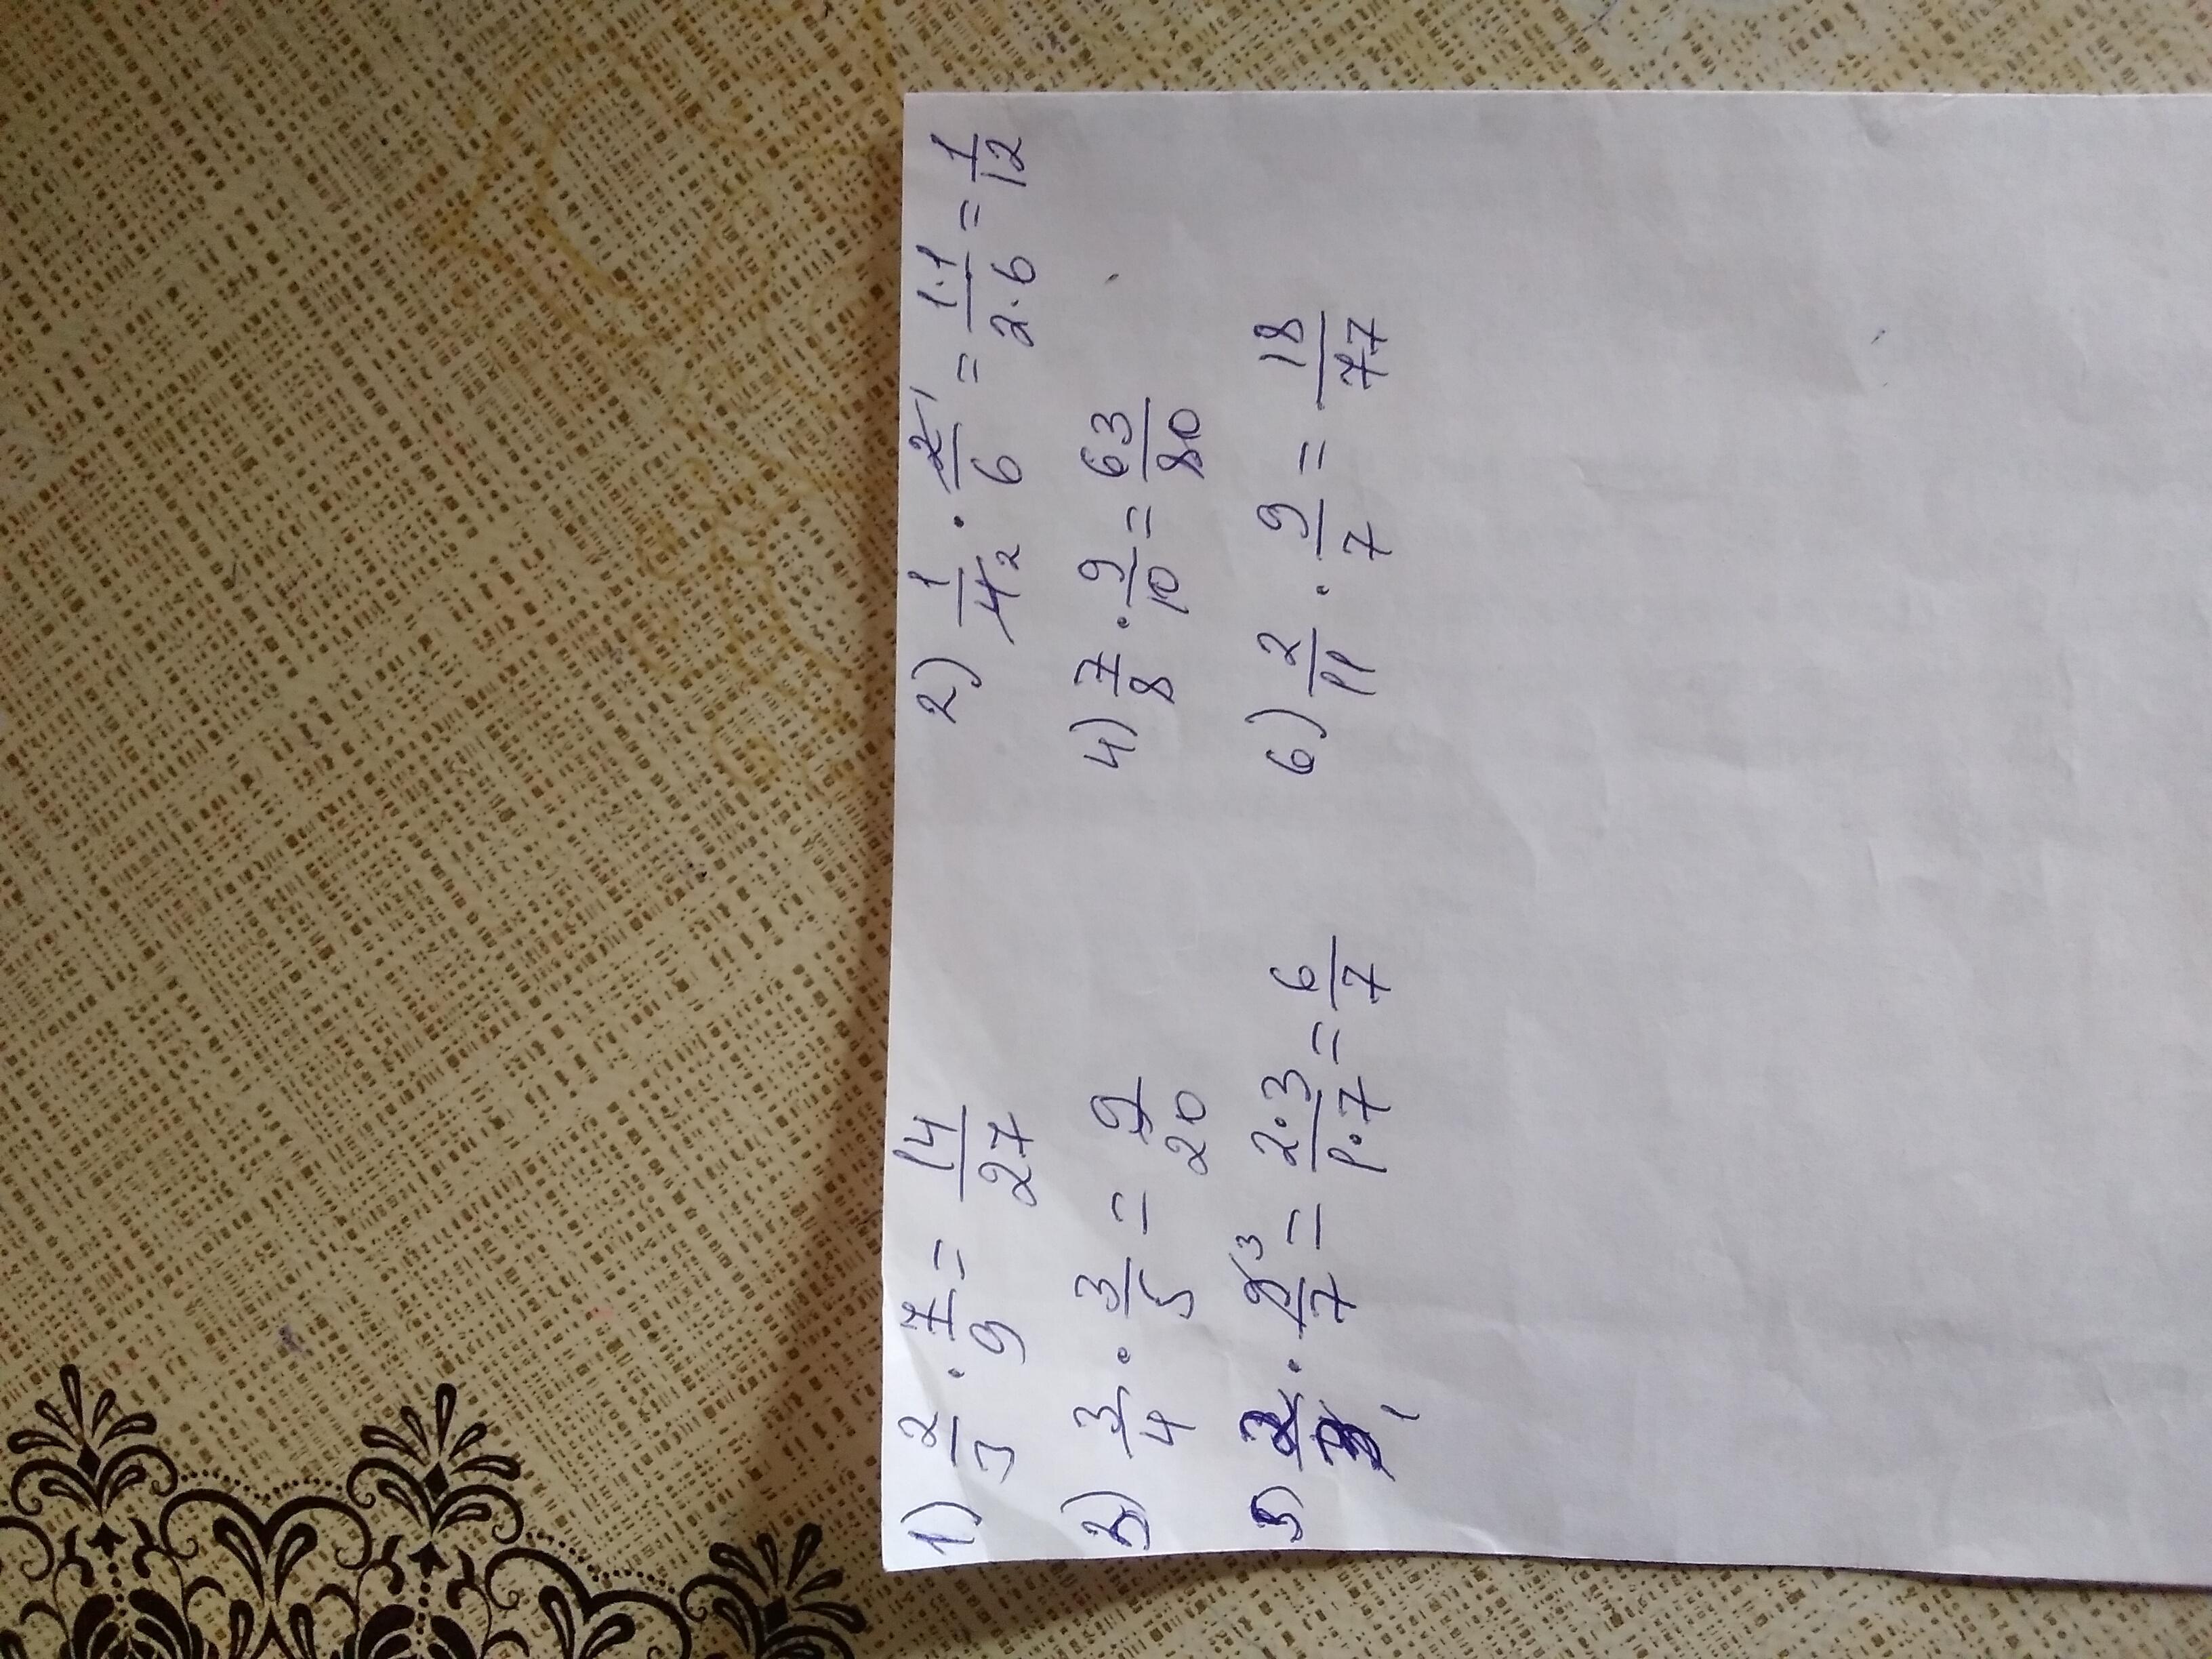 1) 2/3 · 7/9 = 14/27 2) 1/4 2 · 2 1/6 = 1·1/2·6 = 1/12
3) 3/4 · 3/5 = 9/20 4) 7/8 · 9/10 = 63/80
5) 2/3 1 · 9 3/7 = 2·3/1·7 = 6/7 6) 2/11 · 9/7 = 18/77